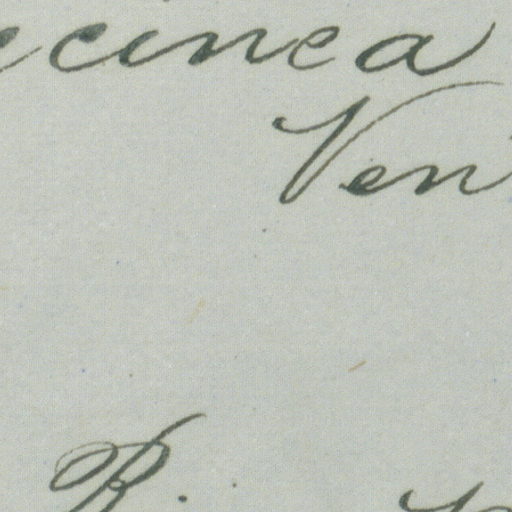 ccinea
Ven
B.